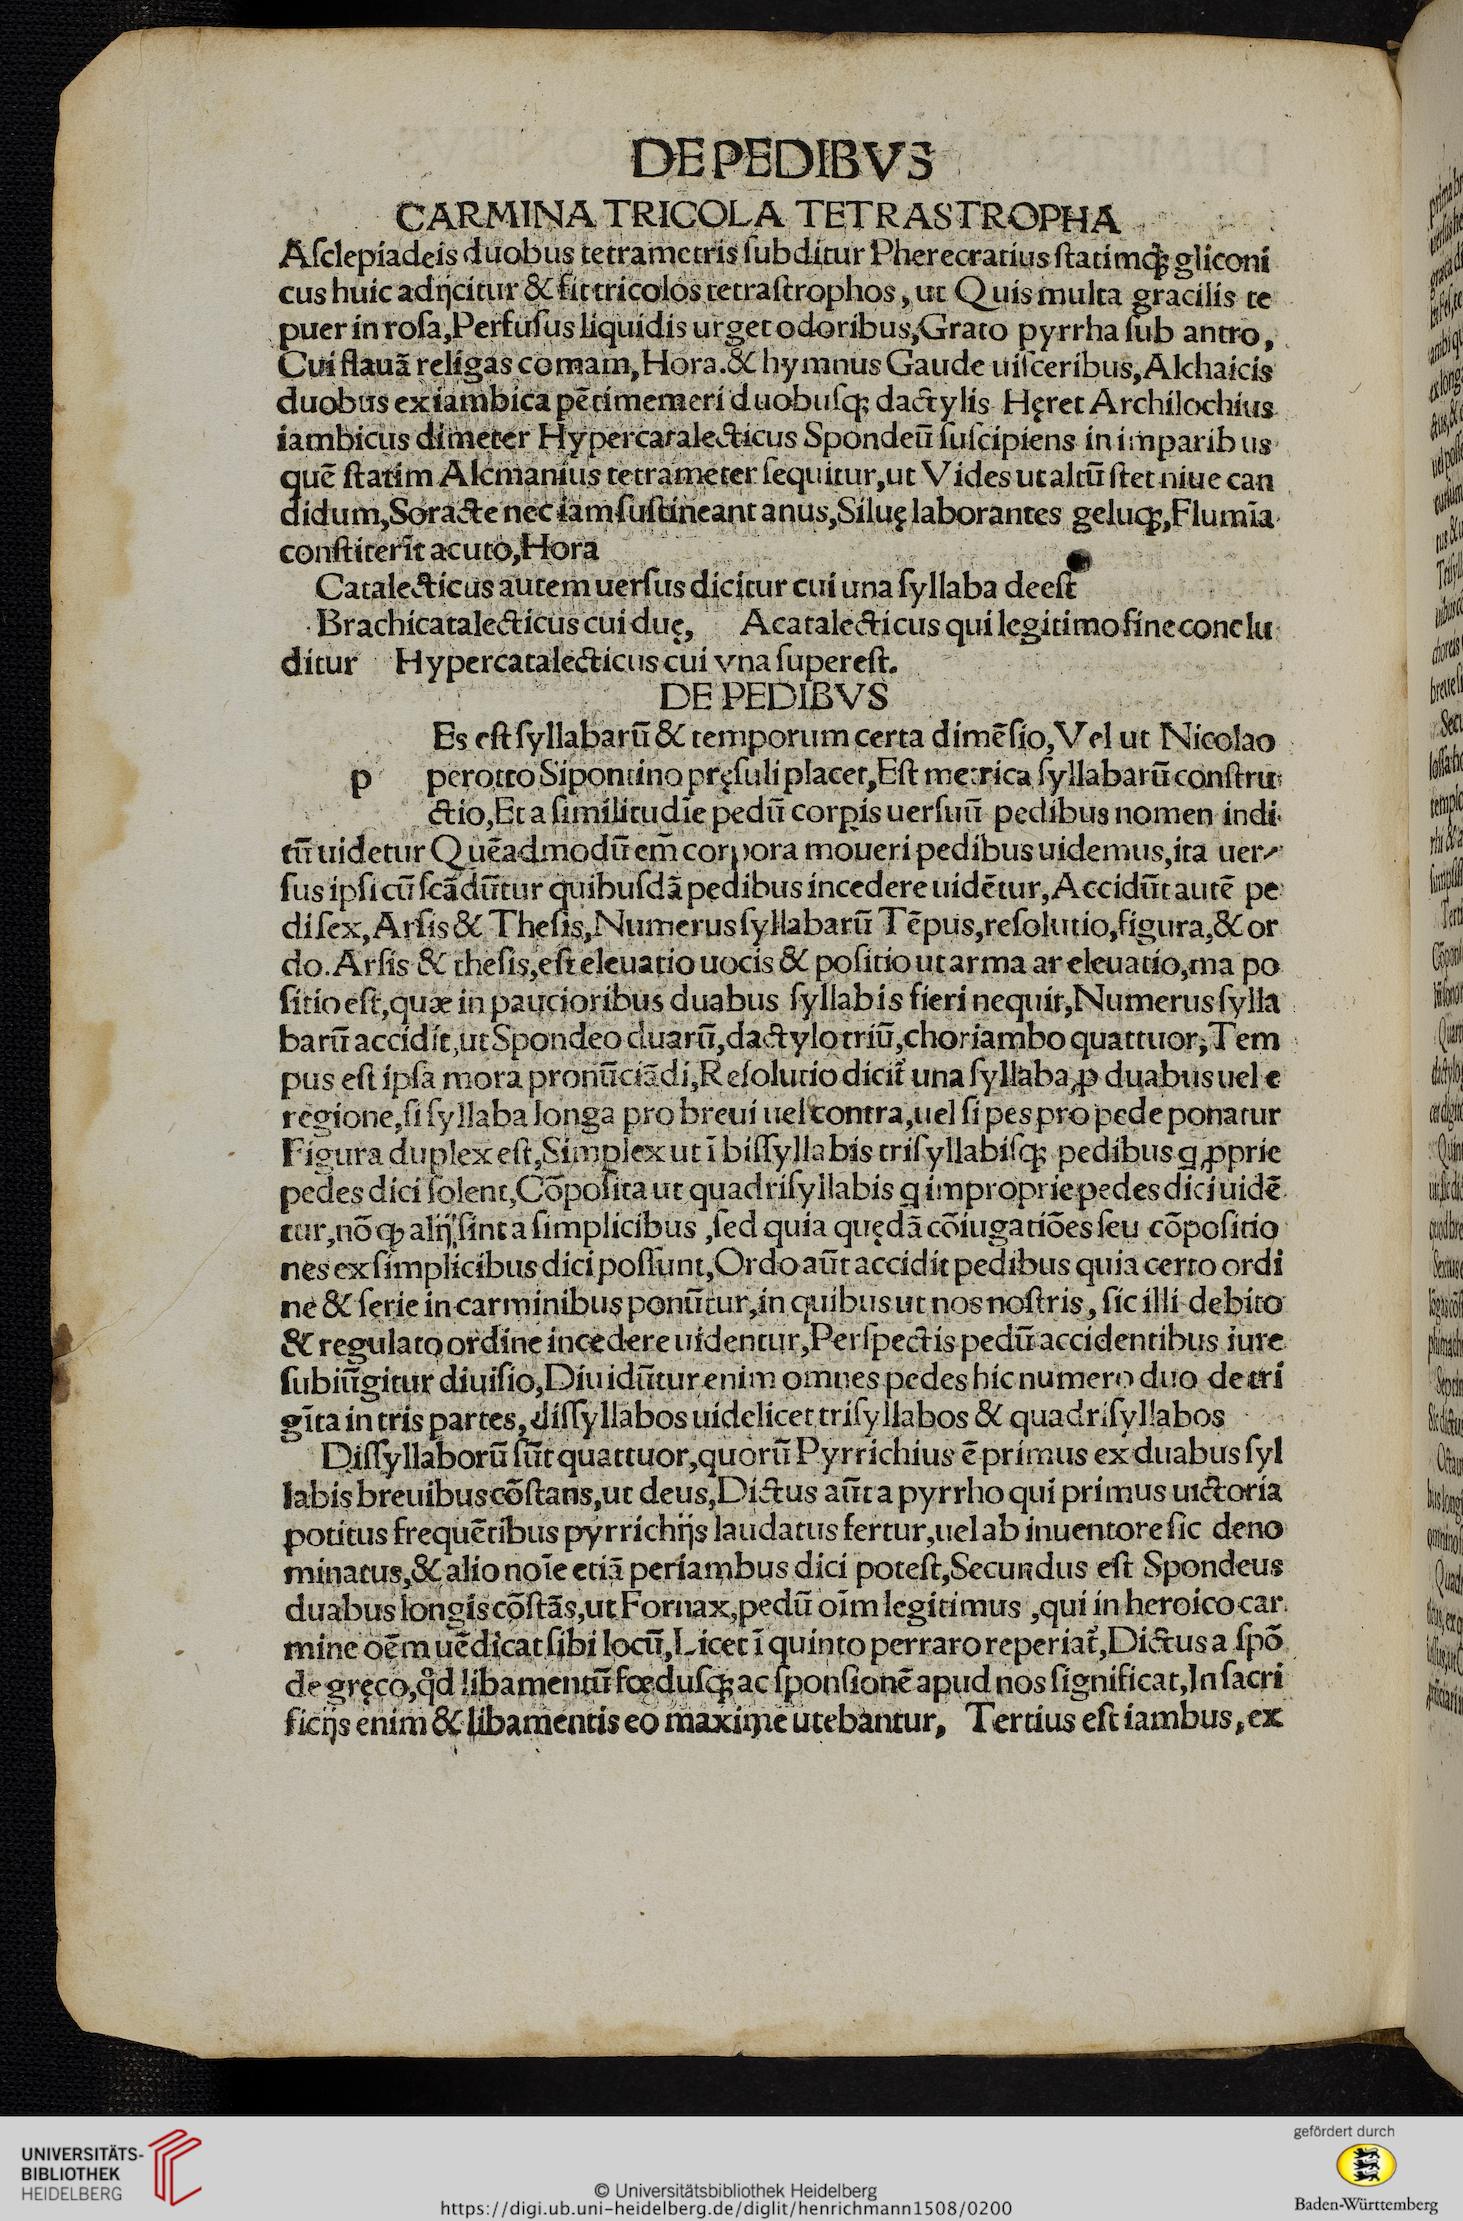 DE PEDIBVS
CARMINA TRICOLA TETRASTROPHA
Aſclepiadeis duobus tetrametris ſubditur Pherecratius ſtatimq; gliconi
cus huic adijcitur & fit tricolos tetraſtrophos, ut Quis multa gracilis te
puer in roſa, Perfuſus liquidis urget odoribus, Grato pyrrha ſub antro,
Cui flauā religas comam, Hora. & hymnus Gaude uiſceribus, Alchaicis
duobus ex iambica pētimemeri duobuſq; dactylis Hęret Archilochius
iambicus dimeter Hypercatalecticus Spondeū ſuſcipiens in imparibus
quē ſtatim Alcmanius tetrameter ſequitur, ut Vides ut altū ſtet niue can
didum, Soracte nec iam ſuſtineant anus, Siluę laborantes geluq;, Flumīa
conſtiterīt acuto, Hora
Catalecticus autem uerſus dicitur cui una ſyllaba deeſt
Brachicatalecticus cui duę, Acatalecticus qui legitimo fine conclu
ditur Hypercatalecticus cui vna ſupereſt.
DE PEDIBVS
Es eſt ſyllabarū & temporum certa dimēſio, Vel ut Nicolao
p perotto Sipontino pręſuli placet, Eſt metrica ſyllabarū conſtru
ctio, Et a ſimilitudīe pedū corpīs uerſuū pedibus nomen indi
tū uidetur Quēadmodū em̄ corpora moueri pedibus uidemus, ita uer-
ſus ipſi cū ſcādūtur quibuſdā pedibus incedere uidētur, Accidūt autē pe
di ſex, Arſis & Theſis, Numerus ſyllabarū Tēpus, reſolutio, figura, & or
do. Arſis & theſis, eſt eleuatio uocis & poſitio ut arma ar eleuatio, ma po
ſitio eſt, quæ in paucioribus duabus ſyllabis fieri nequit, Numerus ſylla
barū accidit, ut Spondeo duarū, dactylo triū, choriambo quattuor, Tem
pus eſt ipſa mora pronūciādi, Reſolutio dicit̄ una ſyllaba ꝓ duabus uel e
regione, ſi ſyllaba longa pro breui uel contra, uel ſi pes pro pede ponatur
Figura duplex eſt, Simplex ut ī biſſyllabis triſyllabiſq; pedibus q ꝓprie
pedes dici ſolent, Cōpoſita ut quadriſyllabis q improprie pedes dici uidē
tur, nō qꝫ alij ſint a ſimplicibus, ſed quia quędā cōiugatiōes ſeu cōpoſitio
nes ex ſimplicibus dici poſſunt, Ordo aūt accidit pedibus quia certo ordi
ne & ſerie in carminibus ponūtur, in quibus ut nos noſtris, ſic illi debito
& regulato ordine incedere uidentur, Perſpectis pedū accidentibus iure
ſubiūgitur diuiſio, Diuidūtur enim omnes pedes hic numero duo de tri
gīta in tris partes, diſſyllabos uidelicet triſyllabos & quadriſyllabos
Diſſyllaborū ſūt quattuor, quorū Pyrrichius ē primus ex duabus ſyl
labis breuibus cōſtans, ut deus, Dictus aūt a pyrrho qui primus uictoria
potitus frequētibus pyrrichijs laudatus fertur, uel ab inuentore ſic deno
minatus, & alio noīe etiā periambus dici poteſt, Secundus eſt Spondeus
duabus longis cōſtās, ut Fornax, pedū oīm legitimus, qui in heroico car
mine oēm uēdicat ſibi locū, Licet ī quinto perraro reperiat̄, Dictus a ſpō
de gręco, qd̄ libamentū fœduſq; ac ſponſionē apud nos ſignificat, In ſacri
ficijs enim & libamentis eo maxime utebantur, Tertius eſt iambus, ex
UNIVERSITÄTS-
BIBLIOTHEK
HEIDELBERG
© Universitätsbibliothek Heidelberg
https://digi.ub.uni-heidelberg.de/diglit/henrichmann1508/0200
gefördert durch
Baden-Württemberg